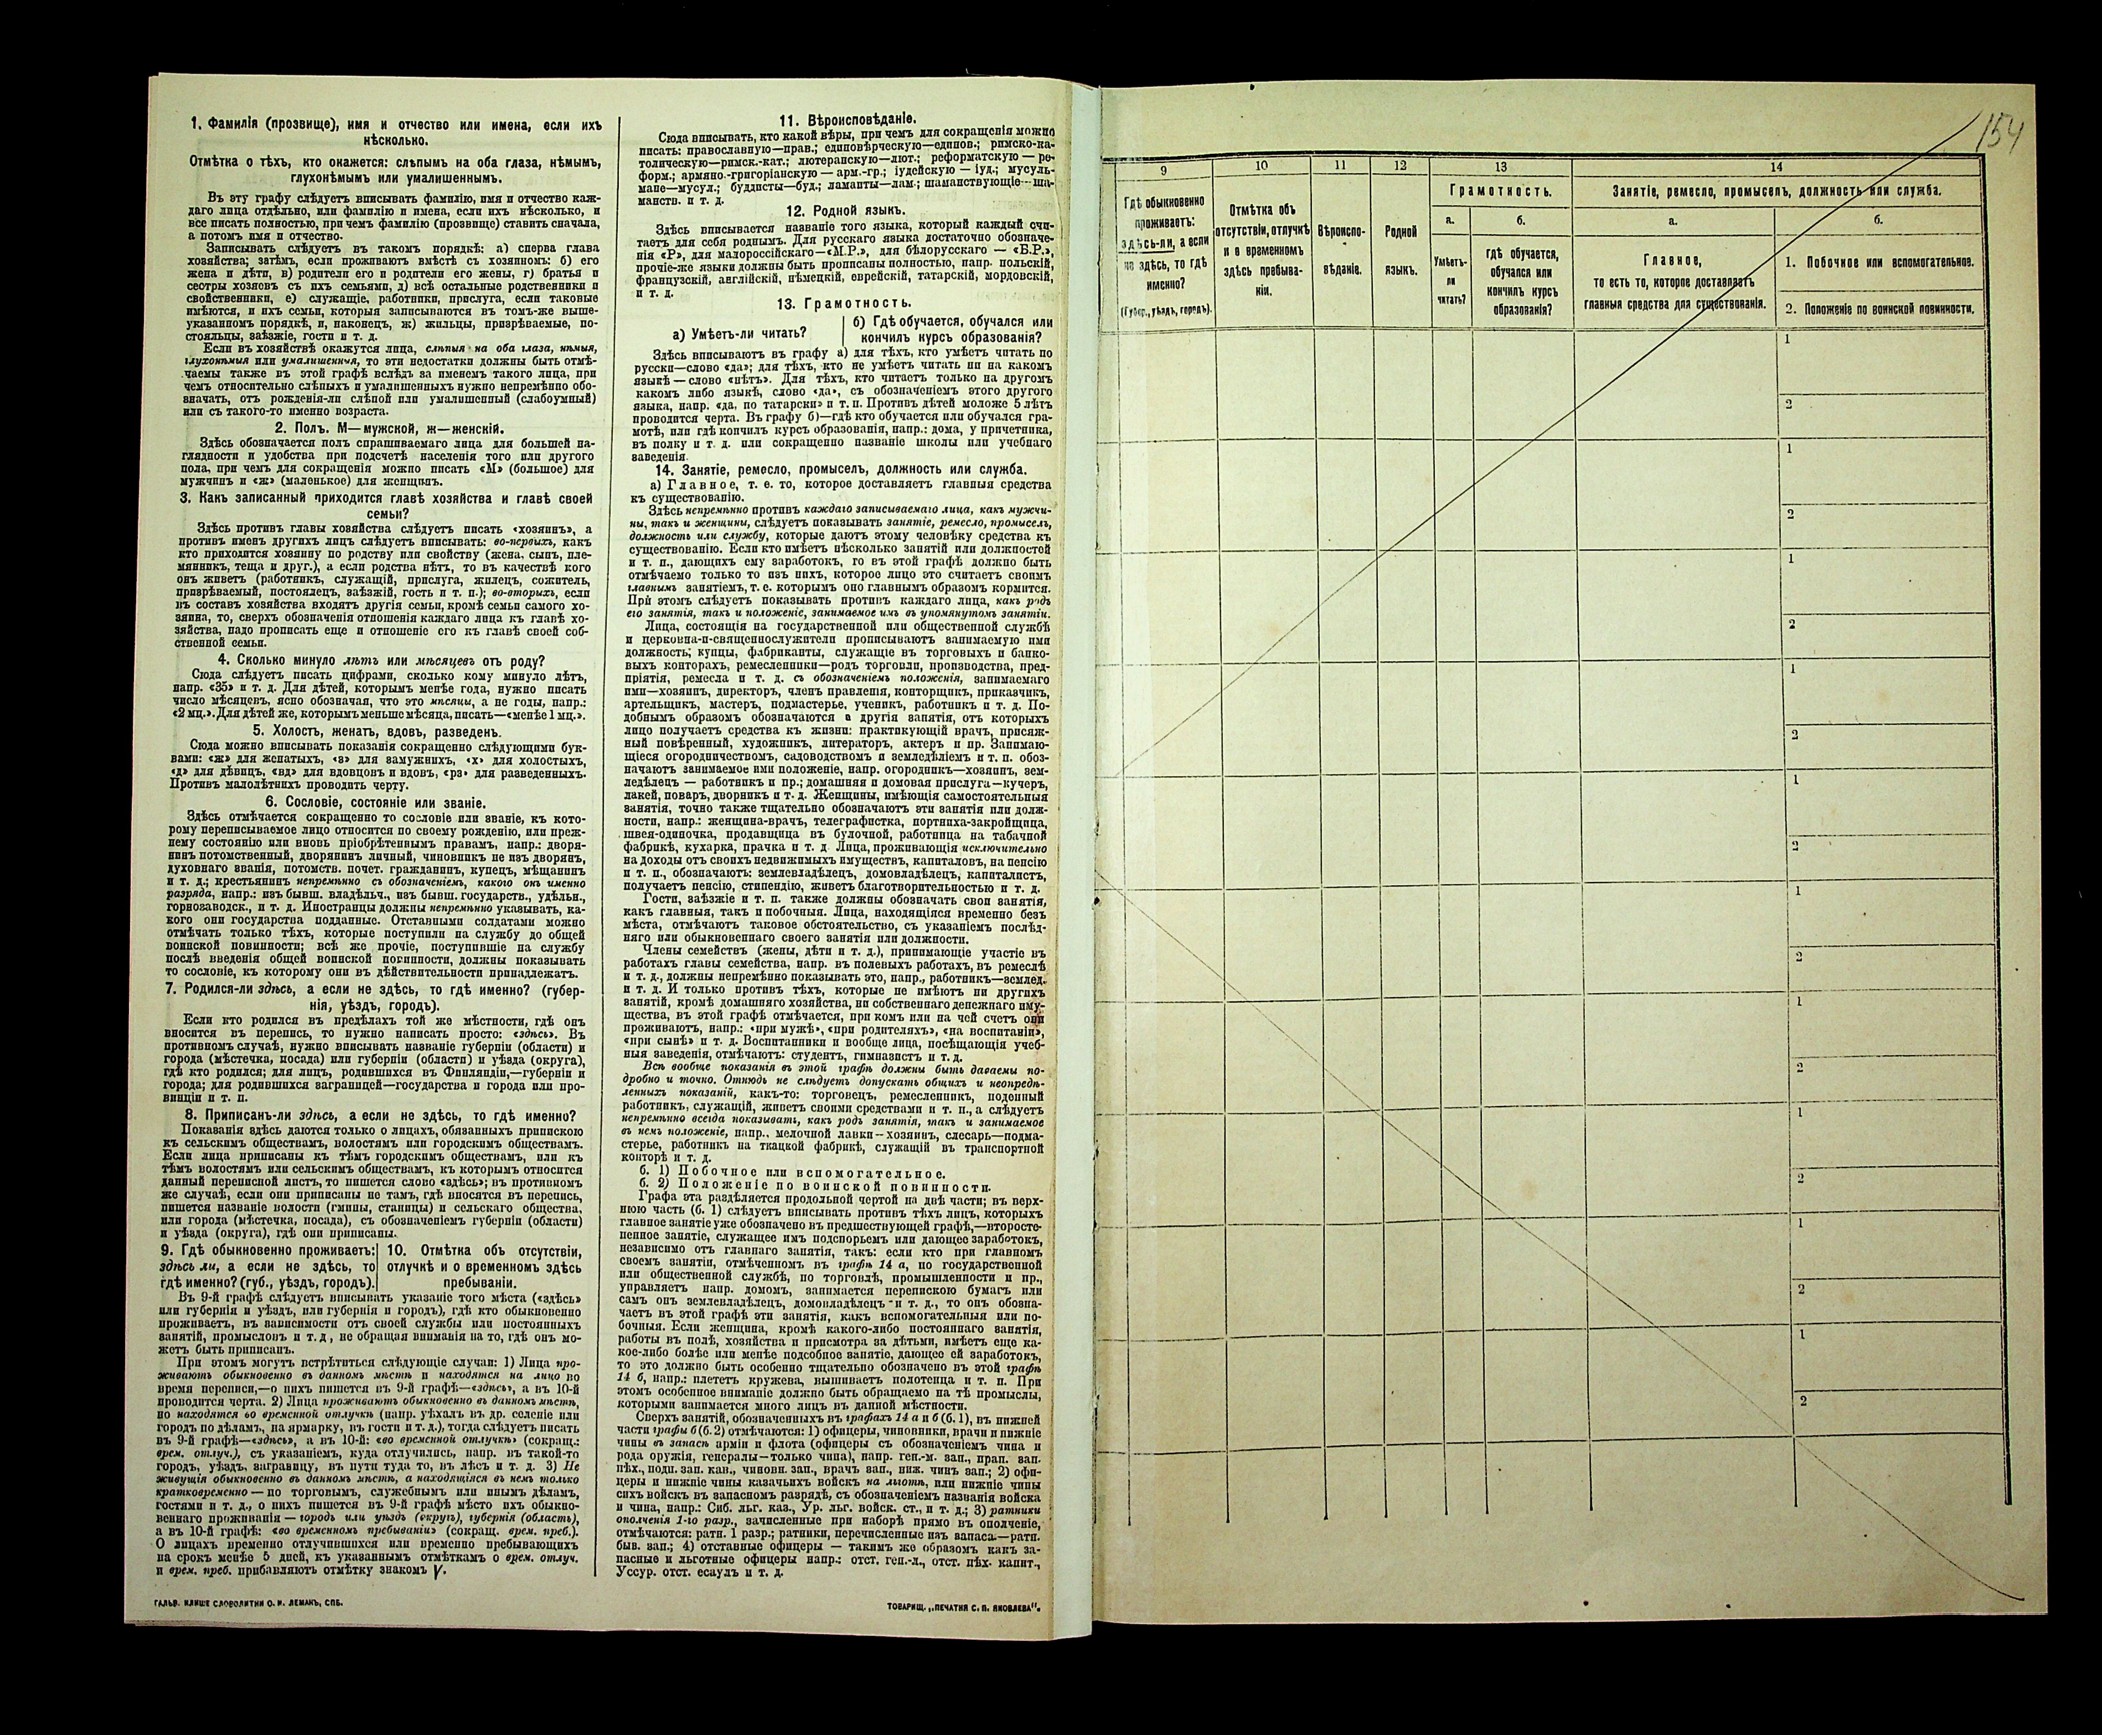 1. Фамилія (прозвище), имя и отчество или имена, если ихъ
нѣсколько.
Отмѣтка о тѣхъ, кто окажется: слѣпымъ на оба глаза, нѣмымъ,
глухонѣмымъ или умалишеннымъ.
Въ эту графу слѣдуетъ вписывать фамилію, имя и отчество каж-
даго лица отдѣльно, или фамилію и имена, если ихъ нѣсколько, и
все писать полностью, при чемъ фамилію (прозвище) ставить сначала,
а потомъ имя и отчество.
Записывать слѣдуетъ въ такомъ порядкѣ: а) сперва глава
хозяйства; затѣмъ, если проживаютъ вмѣстѣ съ хозяиномъ: б) его
жена и дѣти, в) родители его и родители его жены, г) братья и
сестры хозяевъ съ ихъ семьями, д) всѣ остальные родственники и
свойственники, е) служащіе, работники, прислуга, если таковые
имѣются, и ихъ семьи, которыя записываются въ томъ-же выше-
указанномъ порядкѣ, и, наконецъ, ж) жильцы, призрѣваемые, по-
стояльцы, заѣзжіе, гости и т. д.
Если въ хозяйствѣ окажутся лица, слѣпыя на оба глаза, нѣмыя,
глухонѣмыя или умалишенныя, то эти недостатки должны быть отмѣ-
чаемы также въ этой графѣ вслѣдъ за именемъ такого лица, при
чемъ относительно слѣпыхъ и умалишенныхъ нужно непремѣнно обо-
значать, отъ рожденія-ли слѣпой или умалишенный (слабоумный)
или съ такого-то именно возраста.
2. Полъ. М—мужской, ж—женскій.
Здѣсь обозначается полъ спрашиваемаго лица для большей на-
глядности и удобства при подсчетѣ населенія того или другого
пола, при чемъ для сокращенія можно писать «М» (большое) для
мужчинъ и «ж» (маленькое) для женщинъ.
3. Какъ записанный приходится главѣ хозяйства и главѣ своей
семьи?
Здѣсь противъ главы хозяйства слѣдуетъ писать «хозяинъ», а
противъ именъ другихъ лицъ слѣдуетъ вписывать: во-первыхъ, какъ
кто приходится хозяину по родству или свойству (жена, сынъ, пле-
мянникъ, теща и друг.), а если родства нѣтъ, то въ качествѣ кого
онъ живетъ (работникъ, служащій, прислуга, жилецъ, сожитель,
призрѣваемый, постоялецъ, заѣзжій, гость и т. п.); во-вторыхъ, если
въ составъ хозяйства входятъ другія семьи, кромѣ семьи самого хо-
зяина, то, сверхъ обозначенія отношенія каждаго лица къ главѣ хо-
зяйства, надо прописать еще и отношеніе его къ главѣ своей соб-
ственной семьи.
4. Сколько минуло лѣтъ или мѣсяцевъ отъ роду?
Сюда слѣдуетъ писать цифрами, сколько кому минуло лѣтъ,
напр. «35» и т. д. Для дѣтей, которымъ менѣе года, нужно писать
число мѣсяцевъ, ясно обозначая, что это мѣсяцы, а не годы, напр.:
«2 мц.». Для дѣтей же, которымъ меньше мѣсяца, писать—«менѣе 1 мц.».
5. Холостъ, женатъ, вдовъ, разведенъ.
Сюда можно вписывать показанія сокращенно слѣдующими бук-
вами: «ж» для женатыхъ, «з» для замужнихъ, «х» для холостыхъ,
«д» для дѣвицъ, «вд» для вдовцовъ и вдовъ, «рз» для разведенныхъ.
Противъ малолѣтнихъ проводить черту.
6. Сословіе, состояніе или званіе.
Здѣсь отмѣчается сокращенно то сословіе или званіе, къ кото-
рому переписываемое лицо относится по своему рожденію, или преж-
нему состоянію или вновь пріобрѣтеннымъ правамъ, напр.: дворя-
нинъ потомственный, дворянинъ личный, чиновникъ не изъ дворянъ,
духовнаго званія, потомств. почет. гражданинъ, купецъ, мѣщанинъ
и т. д.; крестьянинъ непремѣнно съ обозначеніемъ, какого онъ именно
разряда, напр.: изъ бывш. владѣльч., изъ бывш. государств., удѣльн.,
горнозаводск., и т. д. Иностранцы должны непремѣнно указывать, ка-
кого они государства подданные. Отставными солдатами можно
отмѣчать только тѣхъ, которые поступили на службу до общей
воинской повинности; всѣ же прочіе, поступившіе на службу
послѣ введенія общей воинской повинности, должны показывать
то сословіе, къ которому они въ дѣйствительности принадлежатъ.
7. Родился-ли здѣсь, а если не здѣсь, то гдѣ именно? (губер-
нія, уѣздъ, городъ).
Если кто родился въ предѣлахъ той же мѣстности, гдѣ онъ
вносится въ перепись, то нужно написать просто: «здѣсь». Въ
противномъ случаѣ, нужно вписывать названіе губерніи (области) и
города (мѣстечка, посада) или губерніи (области) и уѣзда (округа),
гдѣ кто родился; для лицъ, родившихся въ Финляндіи,—губерніи и
города; для родившихся заграницей—государства и города или про-
винціи и т. п.
8. Приписанъ-ли здѣсь, а если не здѣсь, то гдѣ именно?
Показанія здѣсь даются только о лицахъ, обязанныхъ припискою
къ сельскимъ обществамъ, волостямъ или городскимъ обществамъ.
Если лица приписаны къ тѣмъ городскимъ обществамъ, или къ
тѣмъ волостямъ или сельскимъ обществамъ, къ которымъ относится
данный переписной листъ, то пишется слово «здѣсь»; въ противномъ
же случаѣ, если они приписаны не тамъ, гдѣ вносятся въ перепись,
пишется названіе волости (гмины, станицы) и сельскаго общества,
или города (мѣстечка, посада), съ обозначеніемъ губерніи (области)
и уѣзда (округа), гдѣ они приписаны.
9. Гдѣ обыкновенно проживаетъ:
здѣсь ли, а если не здѣсь, то
гдѣ именно? (губ., уѣздъ, городъ).
10. Отмѣтка объ отсутствіи,
отлучкѣ и о временномъ здѣсь
пребываніи.
Въ 9-й графѣ слѣдуетъ вписывать указаніе того мѣста («здѣсь»
или губернія и уѣздъ, или губернія и городъ), гдѣ кто обыкновенно
проживаетъ, въ зависимости отъ своей службы или постоянныхъ
занятій, промысловъ и т. д., не обращая вниманія на то, гдѣ онъ мо-
жетъ быть приписанъ.
При этомъ могутъ встрѣтиться слѣдующіе случаи: 1) Лица про-
живаютъ обыкновенно въ данномъ мѣстѣ и находятся на лицо во
время переписи,—о нихъ пишется въ 9-й графѣ—«здѣсь», а въ 10-й
проводится черта. 2) Лица проживаютъ обыкновенно въ данномъ мѣстѣ,
но находятся во временной отлучкѣ (напр. уѣхалъ въ др. селеніе или
городъ по дѣламъ, на ярмарку, въ гости и т. д.), тогда слѣдуетъ писать
въ 9-й графѣ—«здѣсь», а въ 10-й: «во временной отлучкѣ» (сокращ.:
врем. отлуч.), съ указаніемъ, куда отлучились, напр. въ такой-то
городъ, уѣздъ, заграницу, въ пути туда то, въ лѣсъ и т. д. 3) Не
живущія обыкновенно въ данномъ мѣстѣ, а находящіяся въ немъ только
кратковременно — по торговымъ, служебнымъ или инымъ дѣламъ,
гостями и т. д., о нихъ пишется въ 9-й графѣ мѣсто ихъ обыкно-
веннаго проживанія — городъ или уѣздъ (округъ), губернія (область),
а въ 10-й графѣ: «во временномъ пребываніи» (сокращ. врем. преб.).
О лицахъ временно отлучившихся или временно пребывающихъ
на срокъ менѣе 5 дней, къ указаннымъ отмѣткамъ о врем. отлуч.
и врем. преб. прибавляютъ отмѣтку знакомъ V.
ГАЛЬВ. КЛИШЕ СЛОВОЛИТНИ О. И. ЛЕМАНЪ, СПБ.
11. Вѣроисповѣданіе.
Сюда вписывать, кто какой вѣры, при чемъ для сокращенія можно
писать: православную—прав.; единовѣрческую—единов.; римско-ка-
толическую—римск.-кат.; лютеранскую—лют.; реформатскую — ре-
форм.; армяно-григоріанскую — арм.-гр.; іудейскую — іуд.; мусуль-
мане—мусул.; буддисты—буд.; ламаиты—лам.; шаманствующіе—ша-
манств. и т. д.
12. Родной языкъ.
Здѣсь вписывается названіе того языка, который каждый счи-
таетъ для себя роднымъ. Для русскаго языка достаточно обозначе-
нія «Р», для малороссійскаго—«М.Р.», для бѣлорусскаго — «Б.Р.»,
прочіе-же языки должны быть прописаны полностью, напр. польскій,
французскій, англійскій, нѣмецкій, еврейскій, татарскій, мордовскій,
и т. д.
13. Грамотность.
а) Умѣетъ-ли читать?
б) Гдѣ обучается, обучался или
кончилъ курсъ образованія?
Здѣсь вписываютъ въ графу а) для тѣхъ, кто умѣетъ читать по
русски—слово «да»; для тѣхъ, кто не умѣетъ читать ни на какомъ
языкѣ — слово «нѣтъ». Для тѣхъ, кто читаетъ только на другомъ
какомъ либо языкѣ, слово «да», съ обозначеніемъ этого другого
языка, напр. «да, по татарски» и т. п. Противъ дѣтей моложе 5 лѣтъ
проводится черта. Въ графу б)—гдѣ кто обучается или обучался гра-
мотѣ, или гдѣ кончилъ курсъ образованія, напр.: дома, у причетника,
въ полку и т. д. или сокращенно названіе школы или учебнаго
заведенія.
14. Занятіе, ремесло, промыселъ, должность или служба.
а) Главное, т. е. то, которое доставляетъ главныя средства
къ существованію.
Здѣсь непремѣнно противъ каждаго записываемаго лица, какъ мужчи-
ны, такъ и женщины, слѣдуетъ показывать занятіе, ремесло, промыселъ,
должность или службу, которые даютъ этому человѣку средства къ
существованію. Если кто имѣетъ нѣсколько занятій или должностей
и т. п., дающихъ ему заработокъ, то въ этой графѣ должно быть
отмѣчаемо только то изъ нихъ, которое лицо это считаетъ своимъ
главнымъ занятіемъ, т. е. которымъ оно главнымъ образомъ кормится.
При этомъ слѣдуетъ показывать противъ каждаго лица, какъ родъ
его занятія, такъ и положеніе, занимаемое имъ въ упомянутомъ занятіи.
Лица, состоящія на государственной или общественной службѣ
и церковно-и-священнослужители прописываютъ занимаемую ими
должность; купцы, фабриканты, служащіе въ торговыхъ и банко-
выхъ конторахъ, ремесленники—родъ торговли, производства, пред-
пріятія, ремесла и т. д. съ обозначеніемъ положенія, занимаемаго
ими—хозяинъ, директоръ, членъ правленія, конторщикъ, приказчикъ,
артельщикъ, мастеръ, подмастерье, ученикъ, работникъ и т. д. По-
добнымъ образомъ обозначаются и другія занятія, отъ которыхъ
лицо получаетъ средства къ жизни: практикующій врачъ, присяж-
ный повѣренный, художникъ, литераторъ, актеръ и пр. Занимаю-
щіеся огородничествомъ, садоводствомъ и земледѣліемъ и т. п. обоз-
начаютъ занимаемое ими положеніе, напр. огородникъ—хозяинъ, зем-
ледѣлецъ — работникъ и пр.; домашняя и домовая прислуга—кучеръ,
лакей, поваръ, дворникъ и т. д. Женщины, имѣющія самостоятельныя
занятія, точно также тщательно обозначаютъ эти занятія или долж-
ности, напр.: женщина-врачъ, телеграфистка, портниха-закройщица,
швея-одиночка, продавщица въ булочной, работница на табачной
фабрикѣ, кухарка, прачка и т. д. Лица, проживающія исключительно
на доходы отъ своихъ недвижимыхъ имуществъ, капиталовъ, на пенсію
и т. п., обозначаютъ: землевладѣлецъ, домовладѣлецъ, капиталистъ,
получаетъ пенсію, стипендію, живетъ благотворительностью и т. д.
Гости, заѣзжіе и т. п. также должны обозначать свои занятія,
какъ главныя, такъ и побочныя. Лица, находящіяся временно безъ
мѣста, отмѣчаютъ таковое обстоятельство, съ указаніемъ послѣд-
няго или обыкновеннаго своего занятія или должности.
Члены семействъ (жены, дѣти и т. д.), принимающіе участіе въ
работахъ главы семейства, напр. въ полевыхъ работахъ, въ ремеслѣ
и т. д., должны непремѣнно показывать это, напр., работникъ—землед.
и т. д. И только противъ тѣхъ, которые не имѣютъ ни другихъ
занятій, кромѣ домашняго хозяйства, ни собственнаго денежнаго иму-
щества, въ этой графѣ отмѣчается, при комъ или на чей счетъ они
проживаютъ, напр.: «при мужѣ», «при родителяхъ», «на воспитаніи»,
«при сынѣ» и т. д. Воспитанники и вообще лица, посѣщающія учеб-
ныя заведенія, отмѣчаютъ: студентъ, гимназистъ и т. д.
Всѣ вообще показанія въ этой графѣ должны быть даваемы по-
дробно и точно. Отнюдь не слѣдуетъ допускать общихъ и неопредѣ-
ленныхъ показаній, какъ-то: торговецъ, ремесленникъ, поденный
работникъ, служащій, живетъ своими средствами и т. п., а слѣдуетъ
непремѣнно всегда показывать, какъ родъ занятія, такъ и занимаемое
въ немъ положеніе, напр., мелочной лавки—хозяинъ, слесарь—подма-
стерье, работникъ на ткацкой фабрикѣ, служащій въ транспортной
конторѣ и т. д.
б. 1) Побочное или вспомогательное.
б. 2) Положеніе по воинской повинности.
Графа эта раздѣляется продольной чертой на двѣ части; въ верх-
нюю часть (б. 1) слѣдуетъ вписывать противъ тѣхъ лицъ, которыхъ
главное занятіе уже обозначено въ предшествующей графѣ,—второсте-
пенное занятіе, служащее имъ подспорьемъ или дающее заработокъ,
независимо отъ главнаго занятія, такъ: если кто при главномъ
своемъ занятіи, отмѣченномъ въ графѣ 14 а, по государственной
или общественной службѣ, по торговлѣ, промышленности и пр.,
управляетъ напр. домомъ, занимается перепискою бумагъ или
самъ онъ землевладѣлецъ, домовладѣлецъ и т. д., то онъ обозна-
чаетъ въ этой графѣ эти занятія, какъ вспомогательныя или по-
бочныя. Если женщина, кромѣ какого-либо постояннаго занятія,
работы въ полѣ, хозяйства и присмотра за дѣтьми, имѣетъ еще ка-
кое-либо болѣе или менѣе подсобное занятіе, дающее ей заработокъ,
то это должно быть особенно тщательно обозначено въ этой графѣ
14 б, напр.: плететъ кружева, вышиваетъ полотенца и т. п. При
этомъ особенное вниманіе должно быть обращаемо на тѣ промыслы,
которыми занимается много лицъ въ данной мѣстности.
Сверхъ занятій, обозначенныхъ въ графахъ 14 а и б (б. 1), въ нижней
части графы б (б. 2) отмѣчаются: 1) офицеры, чиновники, врачи и нижніе
чины въ запасѣ арміи и флота (офицеры съ обозначеніемъ чина и
рода оружія, генералы—только чина), напр. ген.-м. зап., прап. зап.
пѣх., подп. зап. кав., чиновн. зап., врачъ зап., ниж. чинъ зап.; 2) офи-
церы и нижніе чины казачьихъ войскъ на льготѣ, или нижніе чины
сихъ войскъ въ запасномъ разрядѣ, съ обозначеніемъ названія войска
и чина, напр.: Сиб. льг. каз., Ур. льг. войск. ст., и т. д.; 3) ратники
ополченія 1-го разр., зачисленные при наборѣ прямо въ ополченіе,
отмѣчаются: ратн. 1 разр.; ратники, перечисленные изъ запаса—ратн.
быв. зап.; 4) отставные офицеры — такимъ же образомъ какъ за-
пасные и льготные офицеры напр.: отст. ген.-л., отст. пѣх. капит.,
Уссур. отст. есаулъ и т. д.
ТОВАРИЩ. „ПЕЧАТНЯ С. П. ЯКОВЛЕВА“.
154
9
10
11
12
13
14
Гдѣ обыкновенно
проживаетъ:
здѣсь-ли, а если
не здѣсь, то гдѣ
именно?
(Губер., уѣздъ, городъ).
Отмѣтка объ
отсутствіи, отлучкѣ
и о временномъ
здѣсь пребыва-
ніи.
Вѣроиспо-
вѣданіе.
Родной
языкъ.
Грамотность.
а.
Умѣетъ-
ли
читать?
б.
гдѣ обучается,
обучался или
кончилъ курсъ
образованія?
Занятіе, ремесло, промыселъ, должность или служба.
а.
Главное,
то есть то, которое доставляетъ
главныя средства для существованія.
б.
1. Побочное или вспомогательное.
2. Положеніе по воинской повинности.
1
2
1
2
1
2
1
2
1
2
1
2
1
2
1
2
1
2
1
2